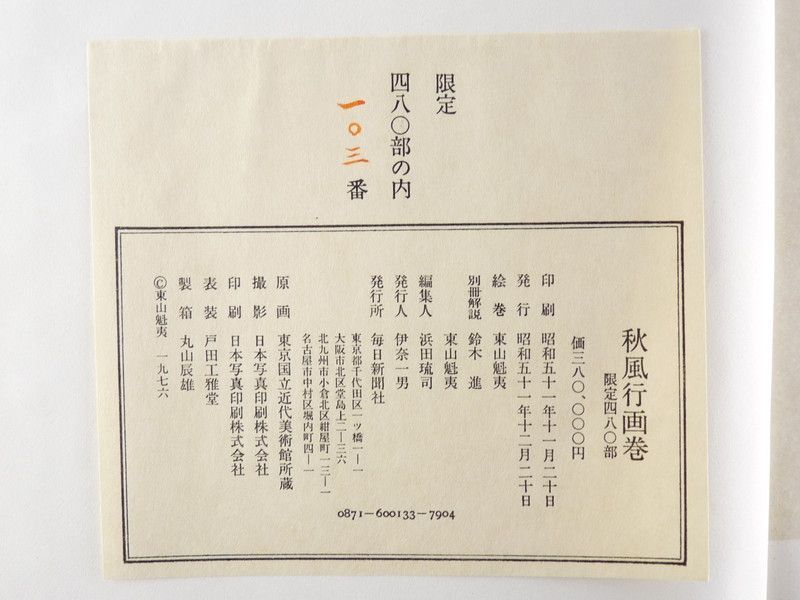 限定
四八〇部の内
一〇三番
秋風行画巻
限定四八〇部
価三八〇、〇〇〇円
印刷 昭和五十一年十一月二十日
発行 昭和五十一年十二月二十日
絵巻 東山魁夷
別冊解説 鈴木進
東山魁夷
編集人 浜田琉司
発行人 伊奈一男
発行所 毎日新聞社
東京都千代田区一ツ橋一―一
大阪市北区堂島上二―三六
北九州市小倉北区紺屋町一三―一
名古屋市中村区堀内町四―一
原画 東京国立近代美術館所蔵
撮影 日本写真印刷株式会社
印刷 日本写真印刷株式会社
表装 戸田工雅堂
製箱 丸山辰雄
©東山魁夷 一九七六
0871―600133―7904